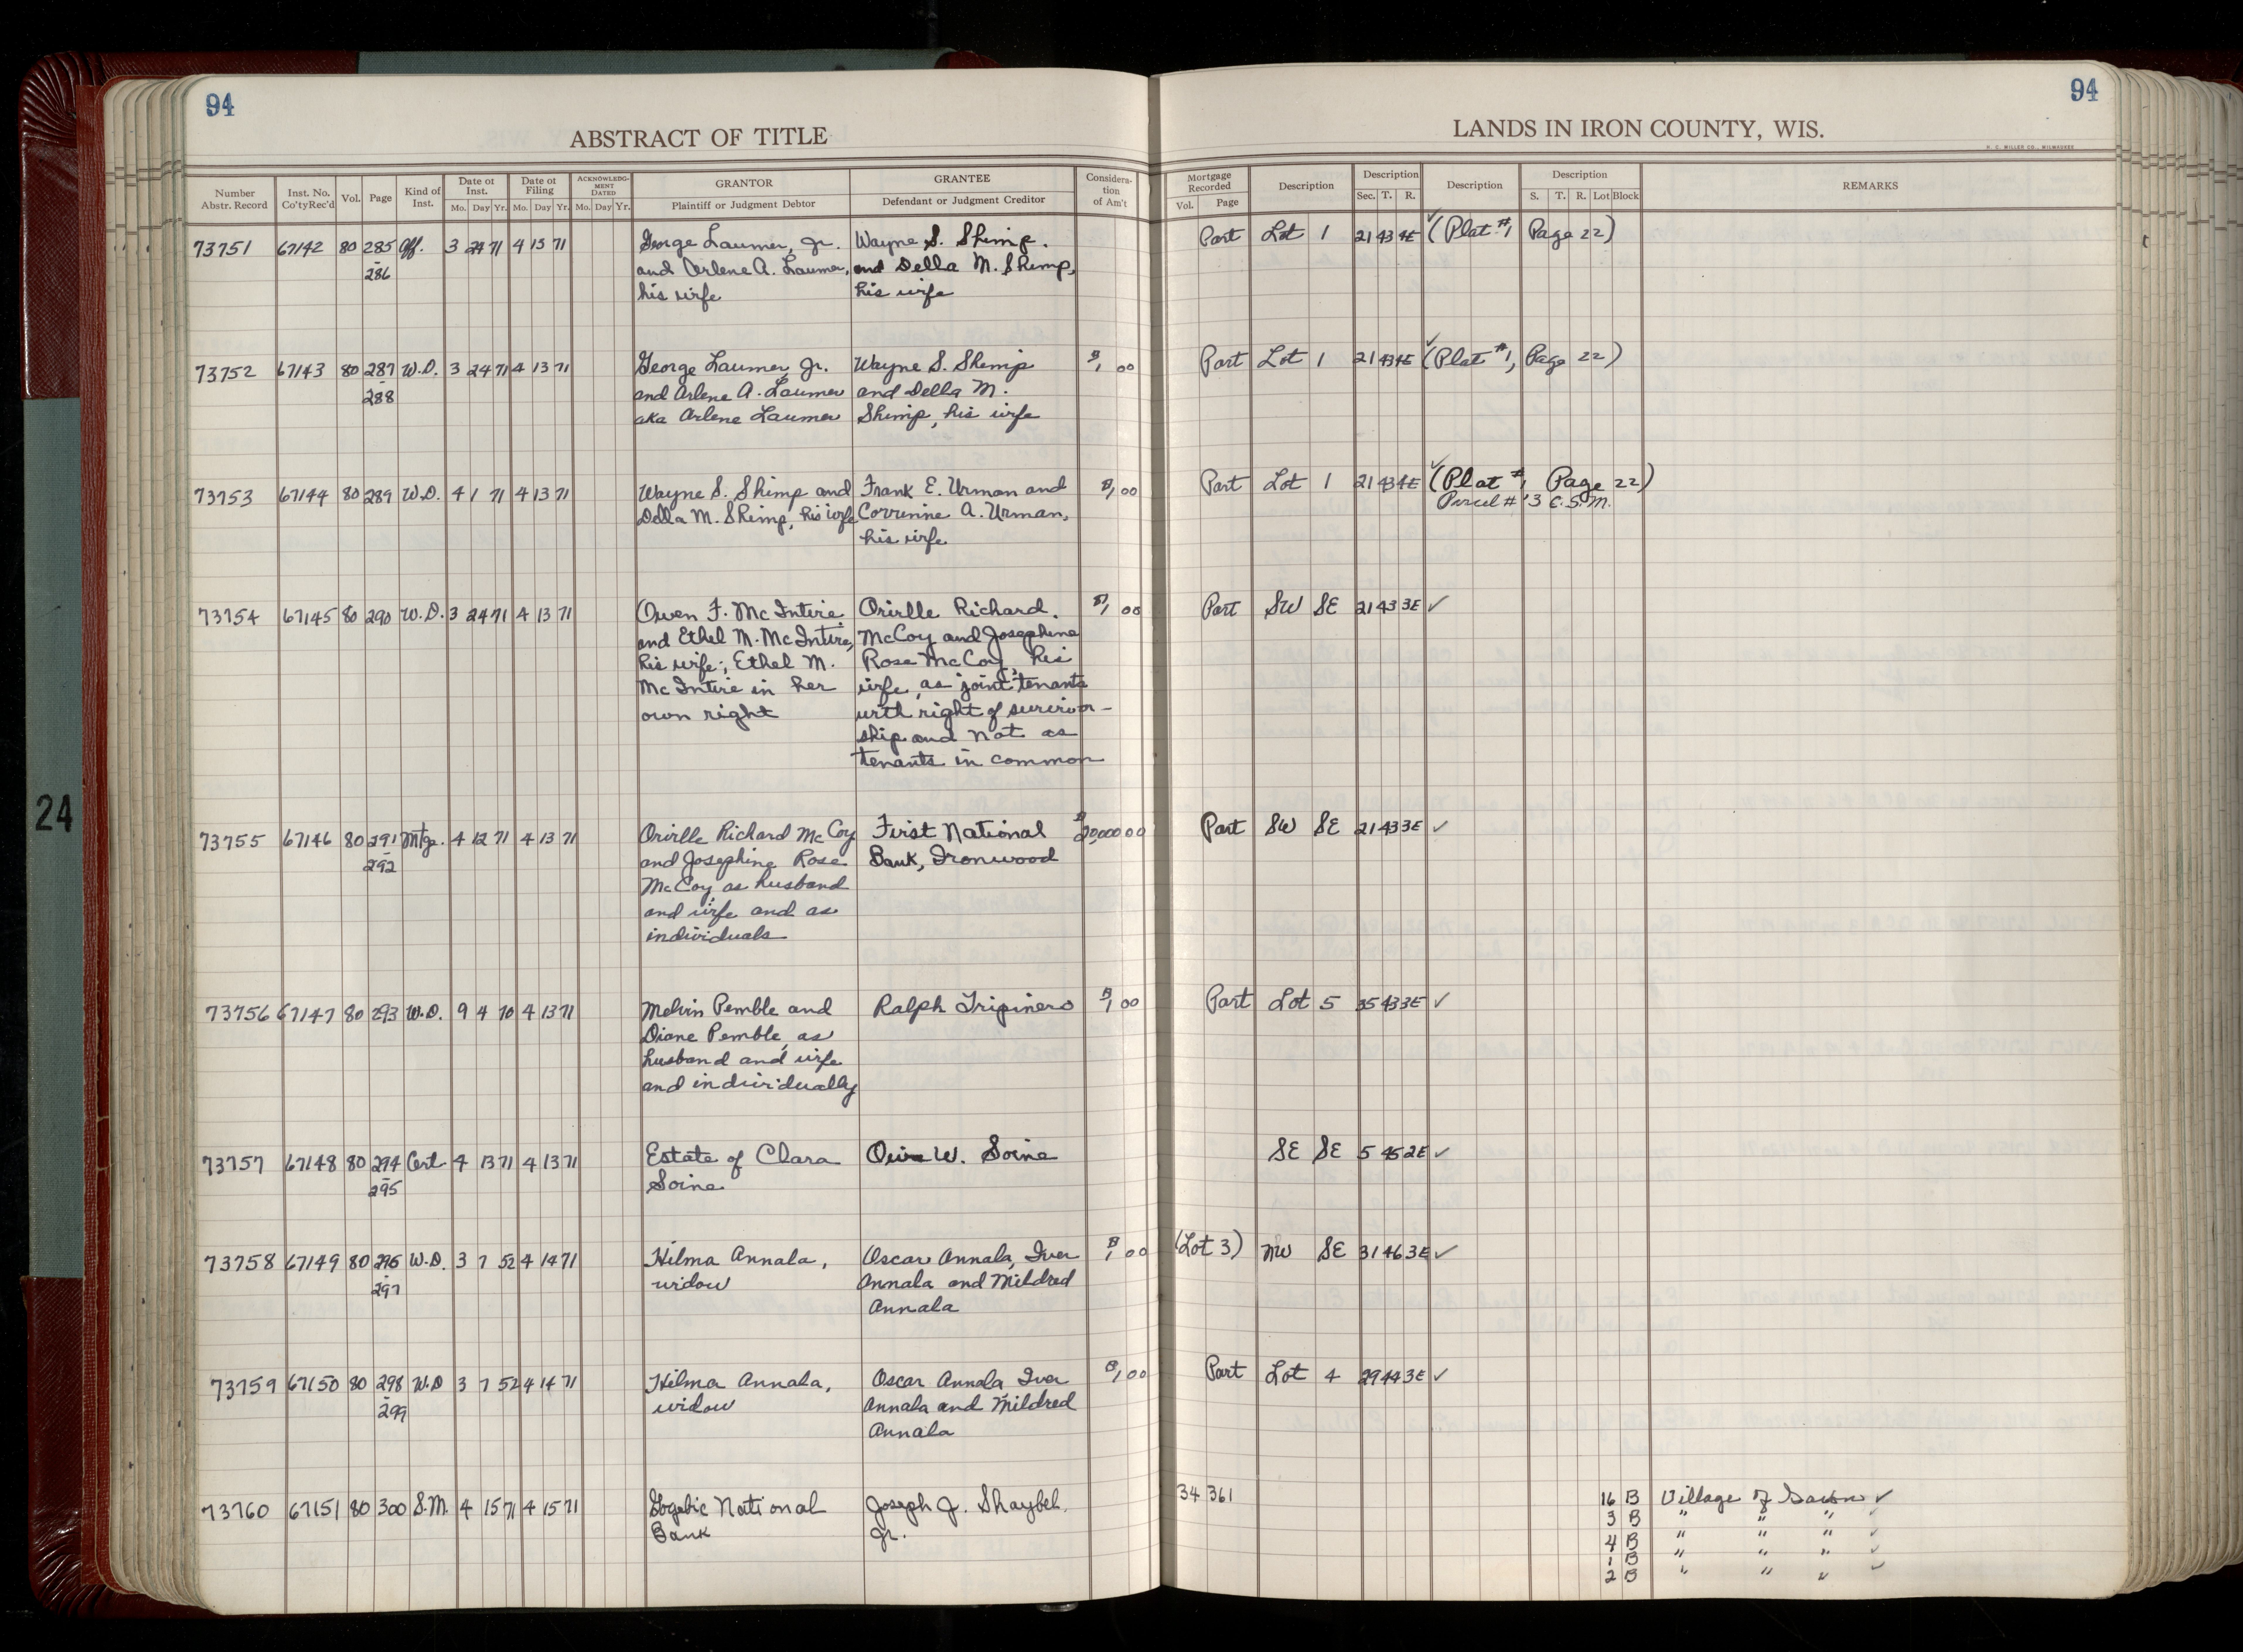 94
94
ABSTRACT OF TITLE
LANDS IN IRON COUNTY, WIS.
H. C. MILLER CO., MILWAUKEE
Number Abstr. Record Inst. No. Co'ty Rec'd Vol. Page Kind of Inst. Date of Inst. Mo. Day Yr. Date of Filing Mo. Day Yr. ACKNOWLEDGMENT DATED Mo. Day Yr. GRANTOR Plaintiff or Judgment Debtor GRANTEE Defendant or Judgment Creditor Consideration of Am't Mortgage Recorded Vol. Page Description Description Sec. T. R. Description Description S. T. R. Lot Block REMARKS
73751 67142 80 285 Aff. 3 24 71 4 13 71 George Laumer, Jr. Wayne S. Shimp Part Lot 1 21 43 4E ✓ (Plat #1 Page 22)
-286 and Arlene A. Laumer, and Della M. Shimp,
his wife his wife
73752 67143 80 287 W.D. 3 24 71 4 13 71 George Laumer, Jr. Wayne S. Shimp $1 00 Part Lot 1 21 43 4E ✓ (Plat #1, Page 22)
-288 and Arlene A. Laumer and Della M.
aka Arlene Laumer Shimp, his wife
73753 67144 80 289 W.D. 4 1 71 4 13 71 Wayne S. Shimp and Frank E. Urman and $1 00 Part Lot 1 21 43 4E ✓ (Plat #1 Page 22)
Della M. Shimp, his wife Corrinne A. Urman, Parcel # 3 C.S.M.
his wife
73754 67145 80 290 W.D. 3 24 71 4 13 71 Owen F. McIntire Orville Richard $1 00 Part SW SE 21 43 3E ✓
and Ethel M. McIntire, McCoy and Josephine
his wife; Ethel M. Rose McCoy, his
McIntire in her wife, as joint tenants
own right with right of survivor-
ship and not as
tenants in common
73755 67146 80 291 Mtge. 4 12 71 4 13 71 Orville Richard McCoy First National 000 00 Part SW SE 21 43 3E ✓
-292 and Josephine Rose Bank, Ironwood
McCoy, as husband
and wife and as
individuals
73756 67147 80 293 W.D. 9 4 70 4 13 71 Melvin Pemble and Ralph Tripinero $1 00 Part Lot 5 35 43 3E ✓
Diane Pemble, as
husband and wife
and individually
73757 67148 80 294 Cert. 4 13 71 4 13 71 Estate of Clara W. Soine SE SE 5 45 2E ✓
-295 Soine
73758 67149 80 296 W.D. 3 7 52 4 14 71 Hilma Annala, Oscar Annala, Iver $1 00 (Lot 3) NW SE 31 46 3E ✓
-297 widow Annala and Mildred
Annala
73759 67150 80 298 W.D 3 7 52 4 14 71 Hilma Annala, Oscar Annala Iver $1 00 Part Lot 4 29 44 3E ✓
-299 widow Annala and Mildred
Annala
73760 67151 80 300 S.M. 4 15 71 4 15 71 Gogebic National Joseph J. Shaybel 34 361 16 B Village of ✓
Bank Jr. 3 B " " " ✓
4 B " " " ✓
1 B " " " ✓
2 B " " " ✓
24